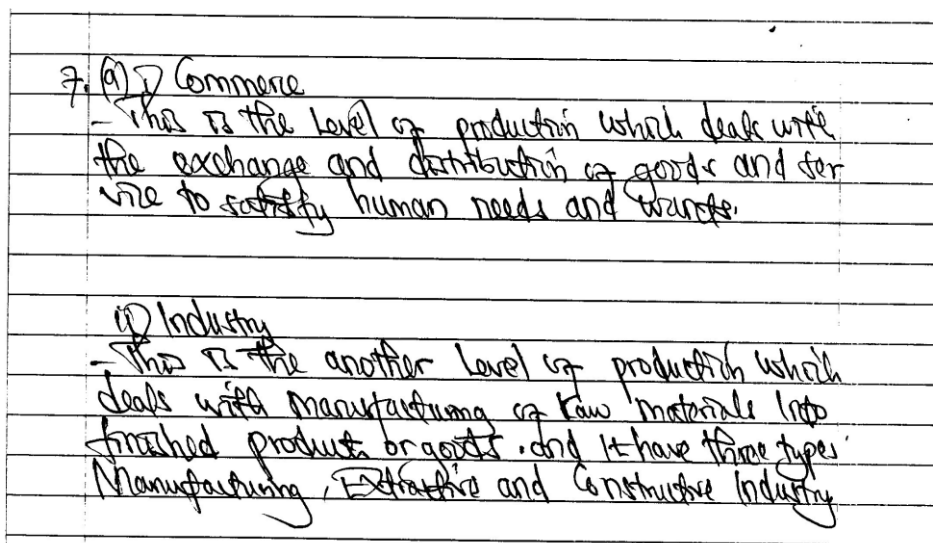 7. (a) i) Commerce
- This is the Level of production which deals with
the exchange and distribution of goods and ser
vice to satisfy human needs and wants.
ii) Industry
- This is the another Level of production which
deals with manufacturing of raw materials into
finished product or goods. and it have three types
Manufacturing, Extractive and Constructive Industry